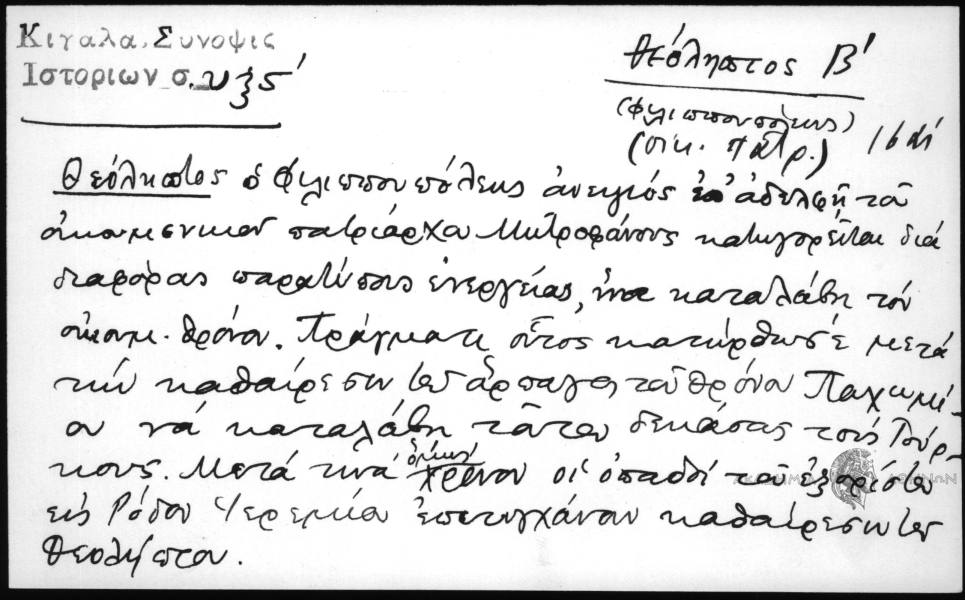 Κιγαλα, Συνοψις
Ιστοριων σ. υξς΄
Θεόληπτος Β΄
(Φιλιππουπόλεως)
(οικ. πατρ.)
Θεόληπτος ὁ Φιλιππουπόλεως ἀνεψιός ἐπ' ἀδελφῇ τοῦ
οἰκουμενικοῦ πατριάρχου Μητροφάνους κατηγορεῖται διά
διαφόρας παρατύπους ἐνεργείας, ἵνα καταλάβη τόν
οἰκουμ. θρόνον. Πράγματι οὗτος κατώρθωσε μετά
τήν καθαίρεσιν τοῦ ἅρπαγος τοῦ θρόνου Παχωμί-
ου νά καταλάβη τοῦτον δεκάσας τούς Τούρ-
κους. Μετά τινα ὅμως χρόνον οἱ ὀπαδοί τοῦ ἐξορίστου
εἰς Ρόδον Ἱερεμίου ἐπετύγχανον καθαίρεσιν τοῦ
Θεολήπτου.
ΑΚΑΔΗΜΙΑ ΑΘΗΝΩΝ